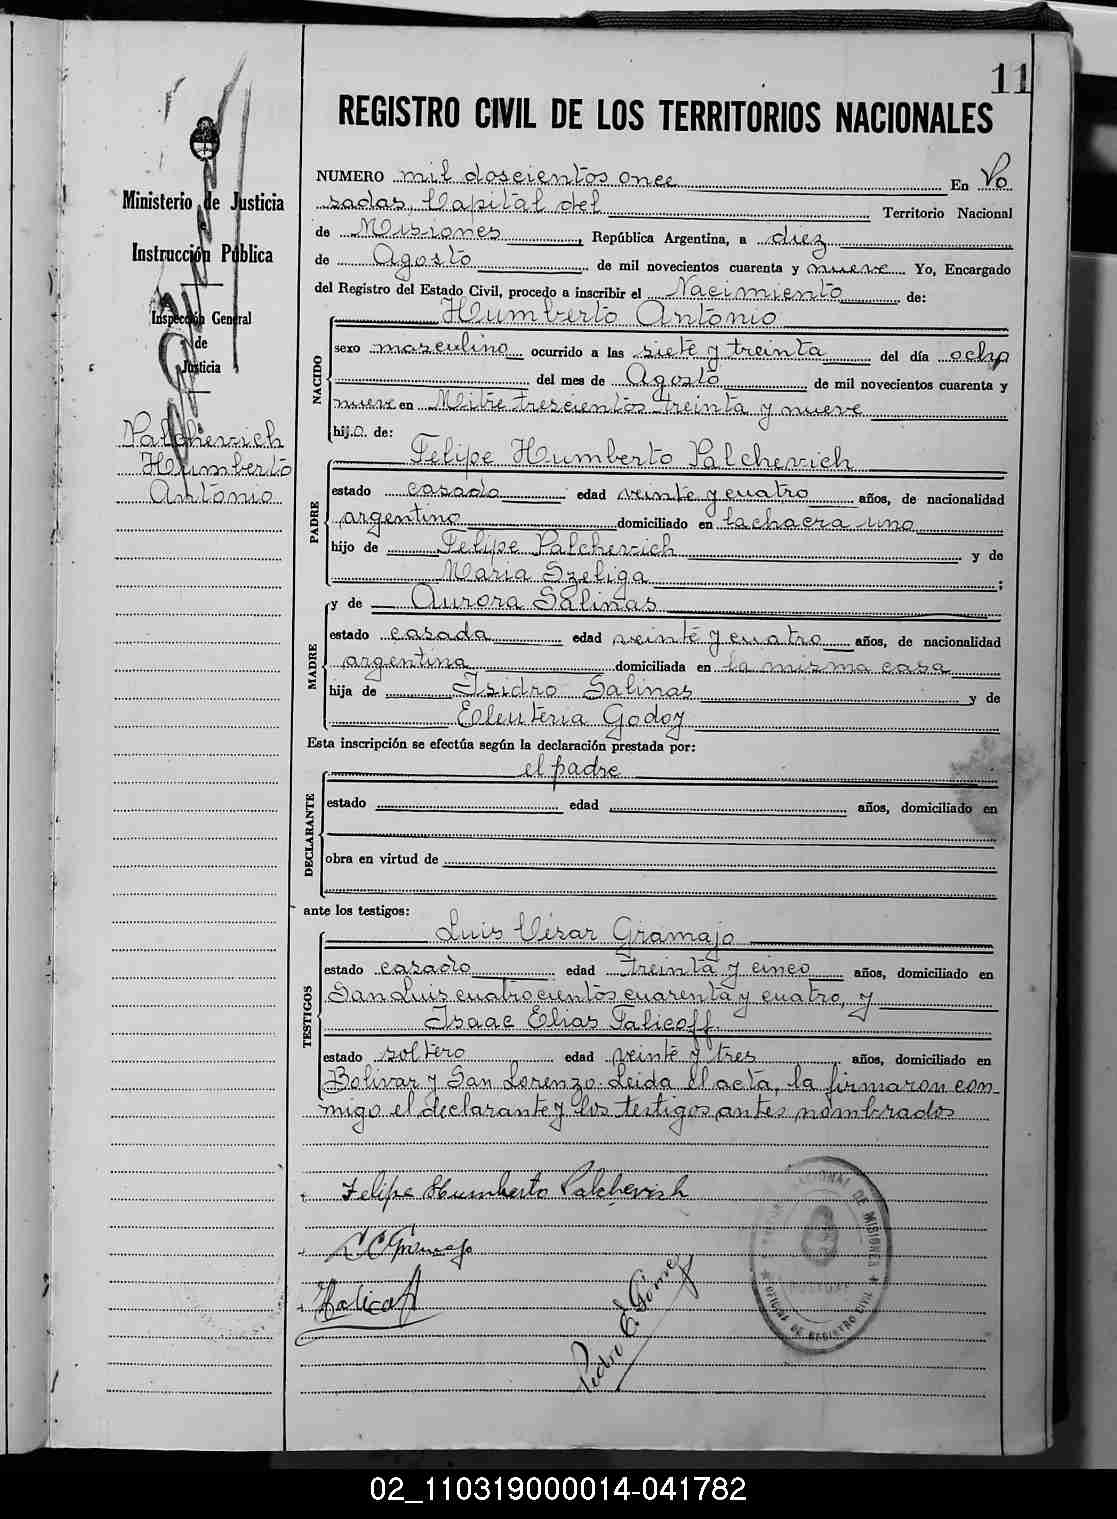 11
REGISTRO CIVIL DE LOS TERRITORIOS NACIONALES
Ministerio de Justicia
e
Instrucción Pública
Inspección General
de
Justicia
Palchevich
Humberto
Antonio
NUMERO mil doscientos once En Po
sadas, Capital del Territorio Nacional
de Misiones, República Argentina, a diez
de Agosto de mil novecientos cuarenta y nueve Yo, Encargado
del Registro del Estado Civil, procedo a inscribir el Nacimiento de:
NACIDO
Humberto Antonio
sexo masculino ocurrido a las siete y treinta del día ocho
del mes de Agosto de mil novecientos cuarenta y
nueve en Mitre trescientos treinta y nueve
hijo de:
PADRE
Felipe Humberto Palchevich
estado casado edad veinte y cuatro años, de nacionalidad
argentino domiciliado en la chacra uno
hijo de Felipe Palchevich y de
Maria Szeliga ;
y de Aurora Salinas
MADRE
estado casada edad veinte y cuatro años, de nacionalidad
argentina domiciliada en la misma casa
hija de Isidro Salinas y de
Eleuteria Godoy
Esta inscripción se efectúa según la declaración prestada por:
DECLARANTE
el padre
estado edad años, domiciliado en
obra en virtud de
ante los testigos:
TESTIGOS
Luis César Gramajo
estado casado edad treinta y cinco años, domiciliado en
San Luis cuatrocientos cuarenta y cuatro, y
Isaac Elias Falicoff
estado soltero edad veinte y tres años, domiciliado en
Bolivar y San Lorenzo. Leida el acta, la firmaron con-
migo el declarante y los testigos antes nombrados
Felipe Humberto Palchevich
L C Gramajo
Pedro E. Gómez
NACIONAL DE MISIONES
OFICINA DE REGISTRO CIVIL
02_110319000014-041782